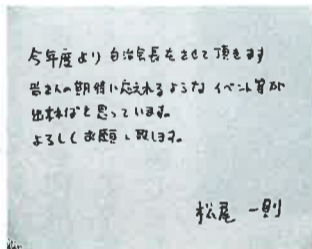 今年度より自治会長をさせて頂きます
皆さんの期待に応えれるようなイベント等が
出来ればと思っています。
よろしくお願い致します。
松尾 一則